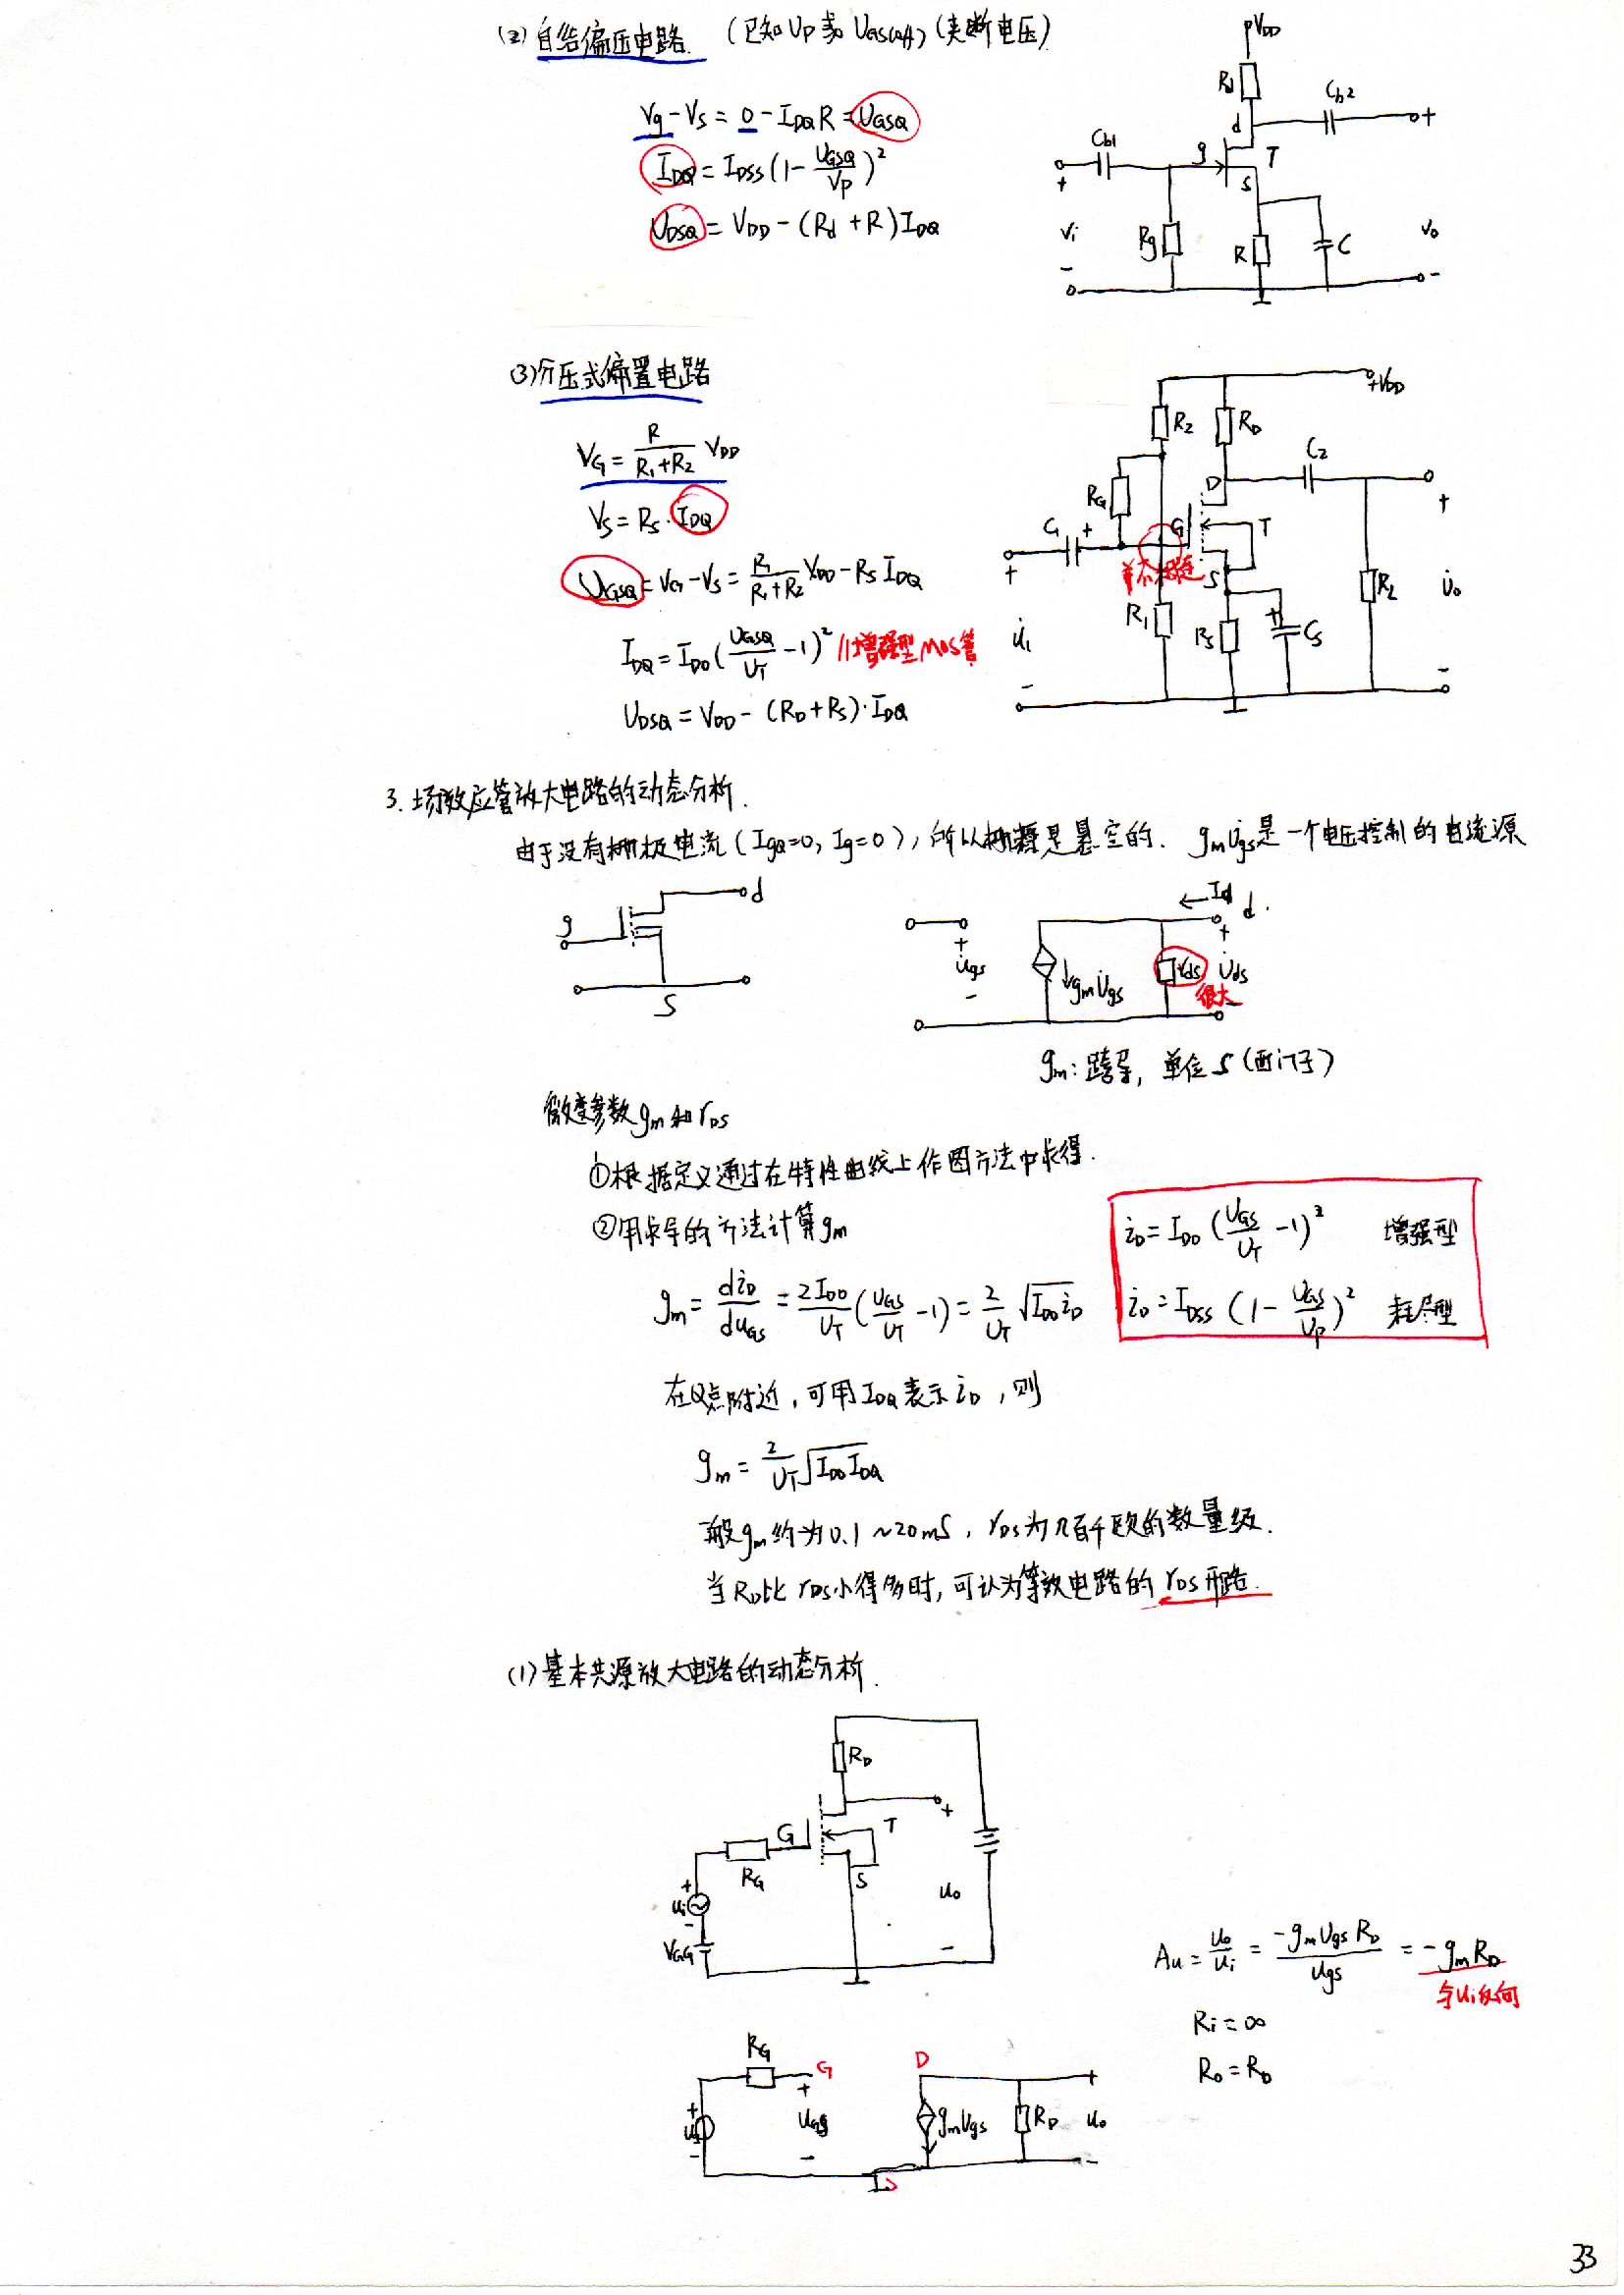 (2) 自给偏压电路. (已知 Up 或 UGS(off)) (夹断电压)
Vg - Vs = 0 - IDQ R = UGSQ
IDQ = IDSS (1 - UGSQ/VP)²
UDSQ = VDD - (Rd + R) IDQ
VDD
Rd
Cb2
d
+
Cb1
g
T
S
+
Vi
Rg
R
C
Vo
-
-
(3) 分压式偏置电路
VG = R/(R1+R2) VDD
VS = RS · IDQ
UGSQ = VG - VS = R1/(R1+R2) VDD - RS IDQ
IDQ = IDO (UGSQ/UT - 1)² //增强型MOS管
UDSQ = VDD - (RD + RS) · IDQ
+VDD
R2
RD
C2
D
RG
+
C1
+
G
T
+
S
并不相连
RL
U̇o
R1
RS
+
CS
U̇i
-
-
3. 场效应管放大电路的动态分析.
由于没有栅极电流 (IgQ=0, Ig=0), 所以栅源是悬空的. gmU̇gs是一个电压控制的电流源
g
d
S
Id
d
+
U̇gs
-
gmU̇gs
rds
很大
+
U̇ds
-
gm: 跨导, 单位 S (西门子)
微变参数 gm 和 rDS
①根据定义通过在特性曲线上作图方法中求得.
②用求导的方法计算gm
gm = diD/duGS = 2IDO/UT (UGS/UT - 1) = 2/UT √(IDO iD)
iD = IDO (UGS/UT - 1)² 增强型
iD = IDSS (1 - UGS/UP)² 耗尽型
在Q点附近, 可用 IDQ 表示 iD, 则
gm = 2/UT √(IDO IDQ)
一般gm约为0.1~20mS, rDS为几百千欧的数量级.
当RD比rDS小得多时, 可认为等效电路的 rDS开路.
(1) 基本共源放大电路的动态分析.
RD
+
G
T
RG
S
+
ui
-
uo
VGG
-
Au = uo/ui = -gmUgsRD/Ugs = -gmRD
与ui反向
Ri = ∞
Ro = RD
RG
G
D
+
+
+
Ugs
gmUgs
RD
uo
-
-
-
S
33